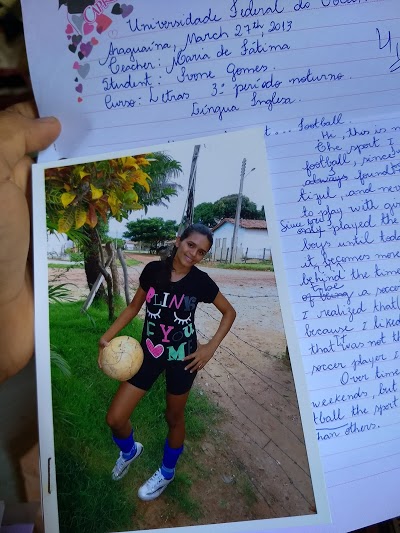 Universidade Federal do Tocan
Araguaína, March 27th, 2013
Teacher: Maria de Fátima
Student: Ivone Gomes.
Curso: Letras 3º período noturno.
Língua Inglesa.
t... Football
Hi, this is m
The sport I
football, since
always found
to play with
only played the
boys until toda
it, becomes more
behind the time
to be
a soccer
I realized that
because I liked
that was not th
soccer player
Over time
weekends, but
tball the sport
han others.
BLINK
if
YOU
ME